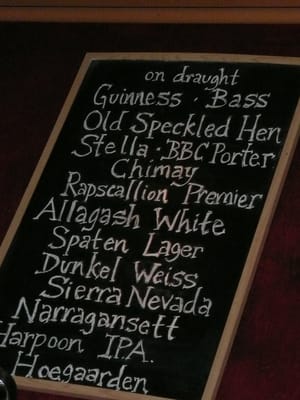 on draught
Guinness · Bass
Old Speckled Hen
Stella · BBC Porter
Chimay
Rapscallion Premier
Allagash White
Spaten Lager
Dunkel Weiss
Sierra Nevada
Narragansett
Harpoon IPA.
Hoegaarden